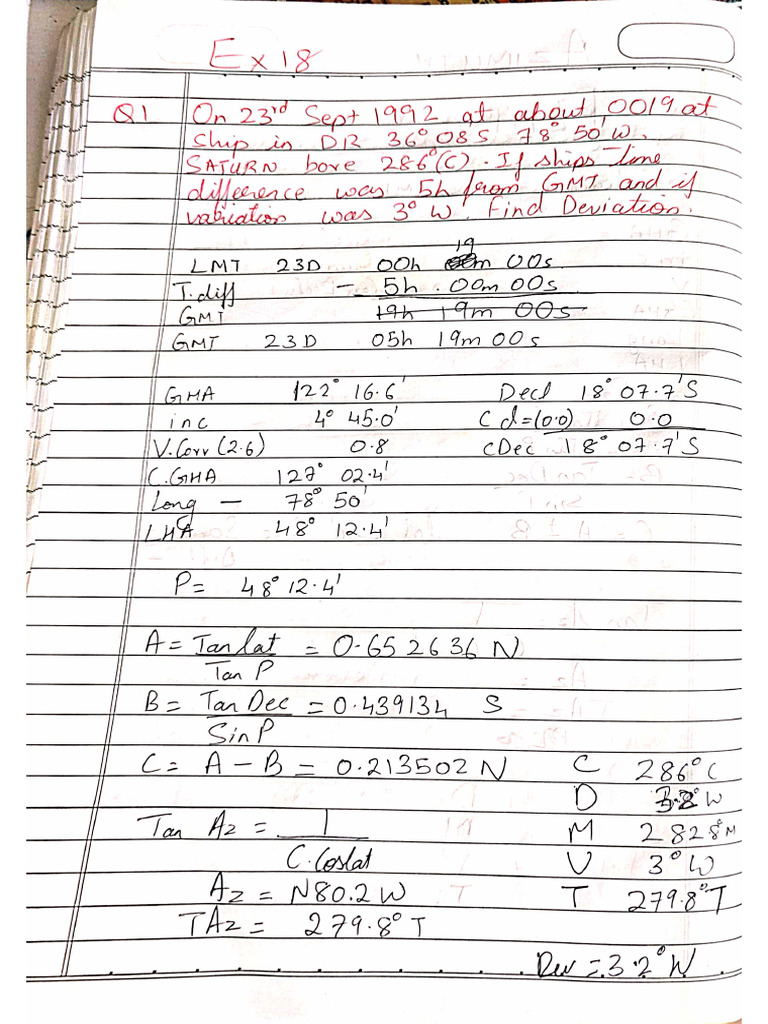 Ex 18
Q1 On 23rd Sept 1992 at about 0019 at
ship in DR 36° 08 S 78° 50' W.
SATURN bore 286°(C). If ships Time
difference was 5h from GMT and if
variation was 3° W. Find Deviation.
19
LMT 23D 00h m 00s
T.diff - 5h . 00m 00s
GMT 19h 19m 00s
GMT 23D 05h 19m 00s
GHA 122° 16.6' Decl 18° 07.7'S
inc 4° 45.0' C d=(0.0) 0.0
V.Corr (2.6) 0.8 CDec 18° 07.7'S
C.GHA 127° 02.4'
Long - 78° 50'
LHA 48° 12.4'
P = 48° 12.4'
A = Tan lat = 0.652636 N
Tan P
B = Tan Dec = 0.439134 S
Sin P
C = A - B = 0.213502 N C 286° C
D 3.2° W
Tan Az = 1 M 282.8° M
C. Coslat V 3° W
Az = N80.2 W T 279.8° T
TAz = 279.8° T
Dev = 3.2° W